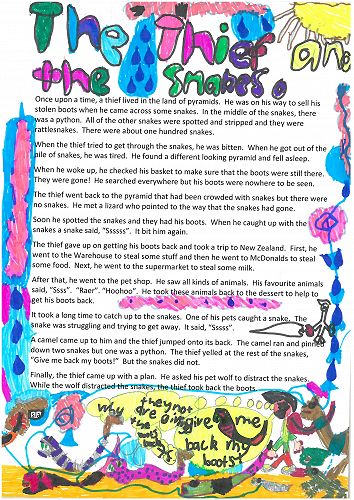 The Thief and
the snakes.
Once upon a time, a thief lived in the land of pyramids. He was on his way to sell his
stolen boots when he came across some snakes. In the middle of the snakes, there
was a python. All of the other snakes were spotted and stripped and they were
rattlesnakes. There were about one hundred snakes.
When the thief tried to get through the snakes, he was bitten. When he got out of the
pile of snakes, he was tired. He found a different looking pyramid and fell asleep.
When he woke up, he checked his basket to make sure that the boots were still there.
They were gone! He searched everywhere but his boots were nowhere to be seen.
The thief went back to the pyramid that had been crowded with snakes but there were
no snakes. He met a lizard who pointed to the way that the snakes had gone.
Soon he spotted the snakes and they had his boots. When he caught up with the
snakes a snake said, "Ssssss". It bit him again.
The thief gave up on getting his boots back and took a trip to New Zealand. First, he
went to the Warehouse to steal some stuff and then he went to McDonalds to steal
some food. Next, he went to the supermarket to steal some milk.
After that, he went to the pet shop. He saw all kinds of animals. His favourite animals
said, "Ssss". "Raer". "Hoohoo". He took these animals back to the dessert to help to
get his boots back.
It took a long time to catch up to the snakes. One of his pets caught a snake. The
snake was struggling and trying to get away. It said, "Sssss".
A camel came up to him and the thief jumped onto its back. The camel ran and pinned
down two snakes but one was a python. The thief yelled at the rest of the snakes,
"Give me back my boots!" But the snakes did not.
Finally, the thief came up with a plan. He asked his pet wolf to distract the snakes.
While the wolf distracted the snakes, the thief took back the boots.
why are they not
giving
the boots
back
give me
back my
boots!